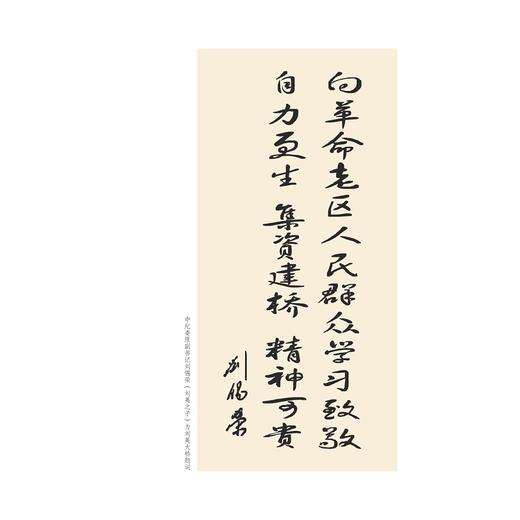 向革命老区人民群众学习致敬
自力更生 集资建桥 精神可贵
刘锡荣
中纪委原副书记刘锡荣（刘英之子）为刘英大桥题词